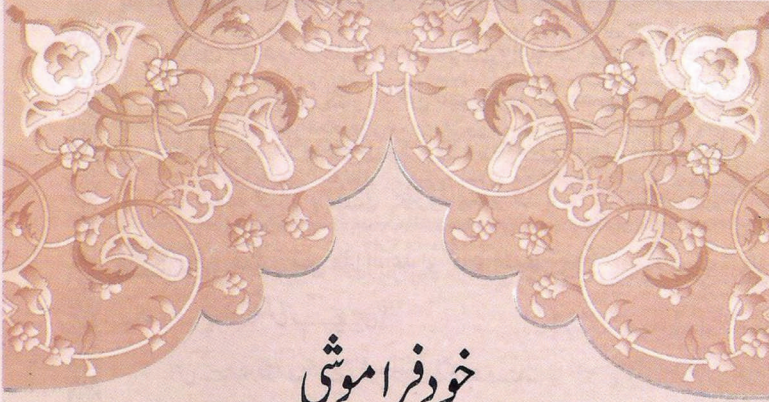 خودفراموشی